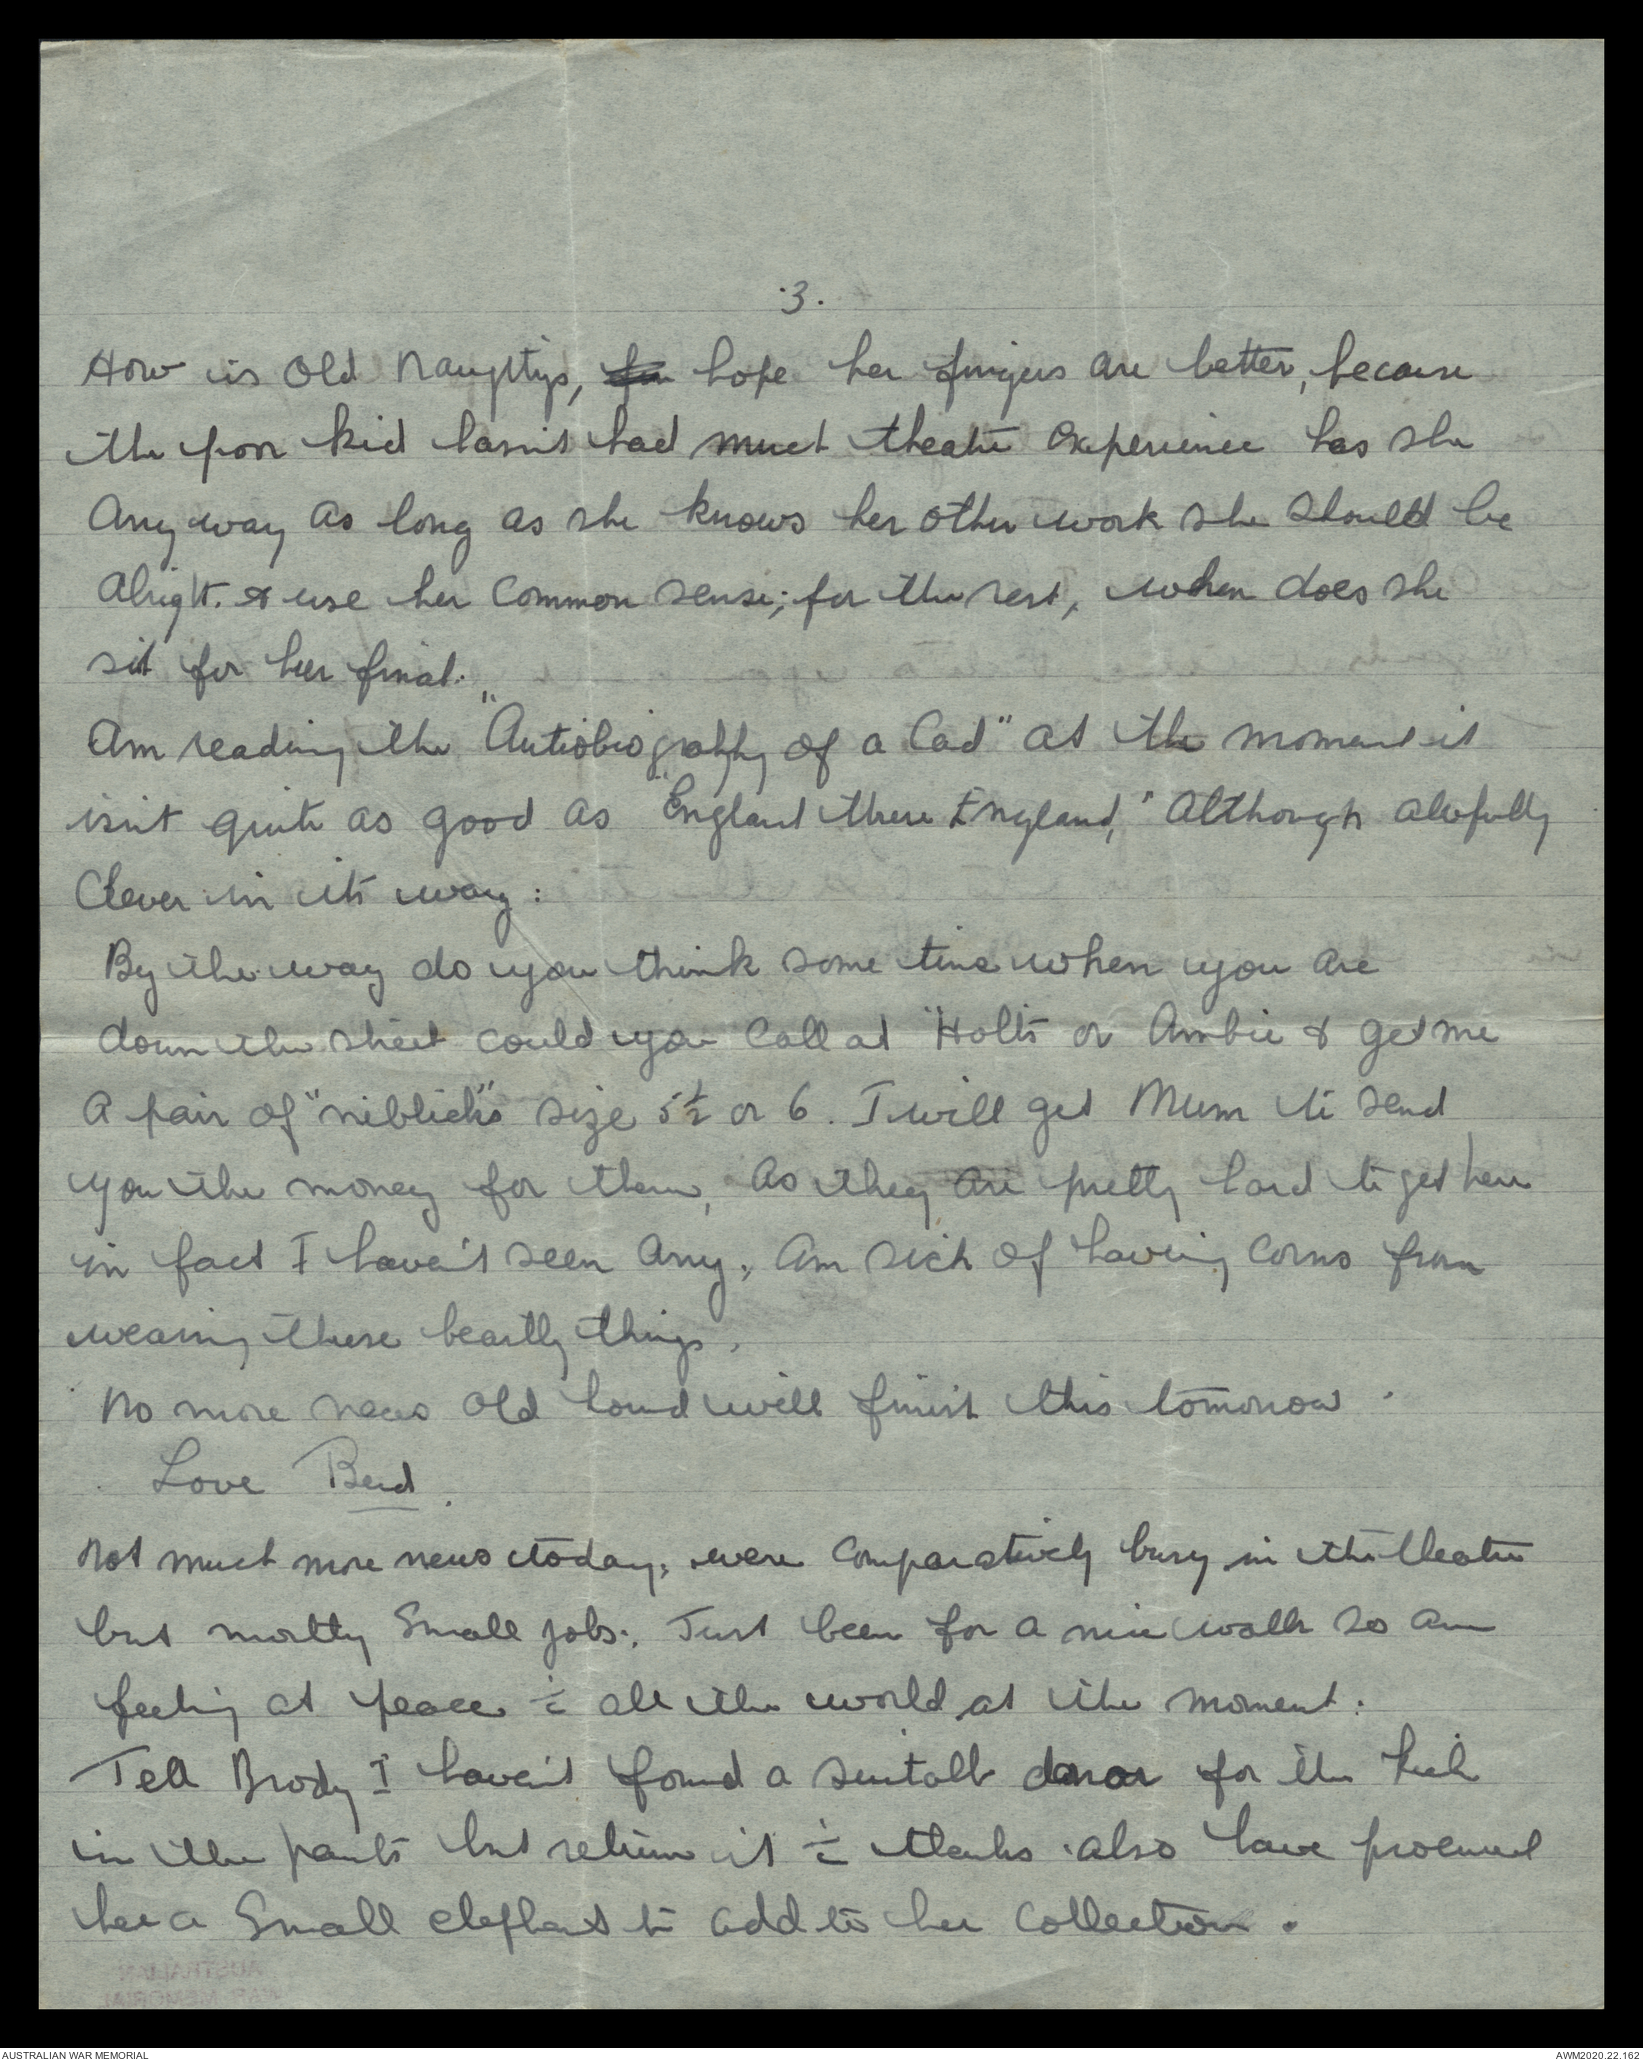 .3.
How is Old Naughtys, hope her fingers are better, because
the poor kid hasn't had much theatre experience has she
Any way as long as she knows her other work she should be
Alright. & use her common sense; for the rest, when does she
sit for her final.
Am reading the "Autiobiography of a Cad" at the moment it
isn't quite as good as "England there England," Although awfully
Clever in its way:
By the way do you think some time when you are
down the street could you call at "Holts or & get me
A pair of "niblick's" size 5½ or 6. I will get Mum to send
you the money for them, As they are pretty hard to get here
in fact I haven't seen any, Am sick of having corns from
wearing these beastly things.
No more news old hound will finish this tomorrow.
Love Berd.
Not much more news today, were comparatively busy in the theatre
but mostly small jobs. Just been for a nice walk so am
feeling at peace c̄ all the world at the moment.
Tell Brody I haven't found a suitable donor for the kick
in the pants but return it c̄ thanks. also have procured
her a small elephant to add to her collection.
AUSTRALIAN
WAR MEMORIAL
AUSTRALIAN WAR MEMORIAL
AWM2020.22.162